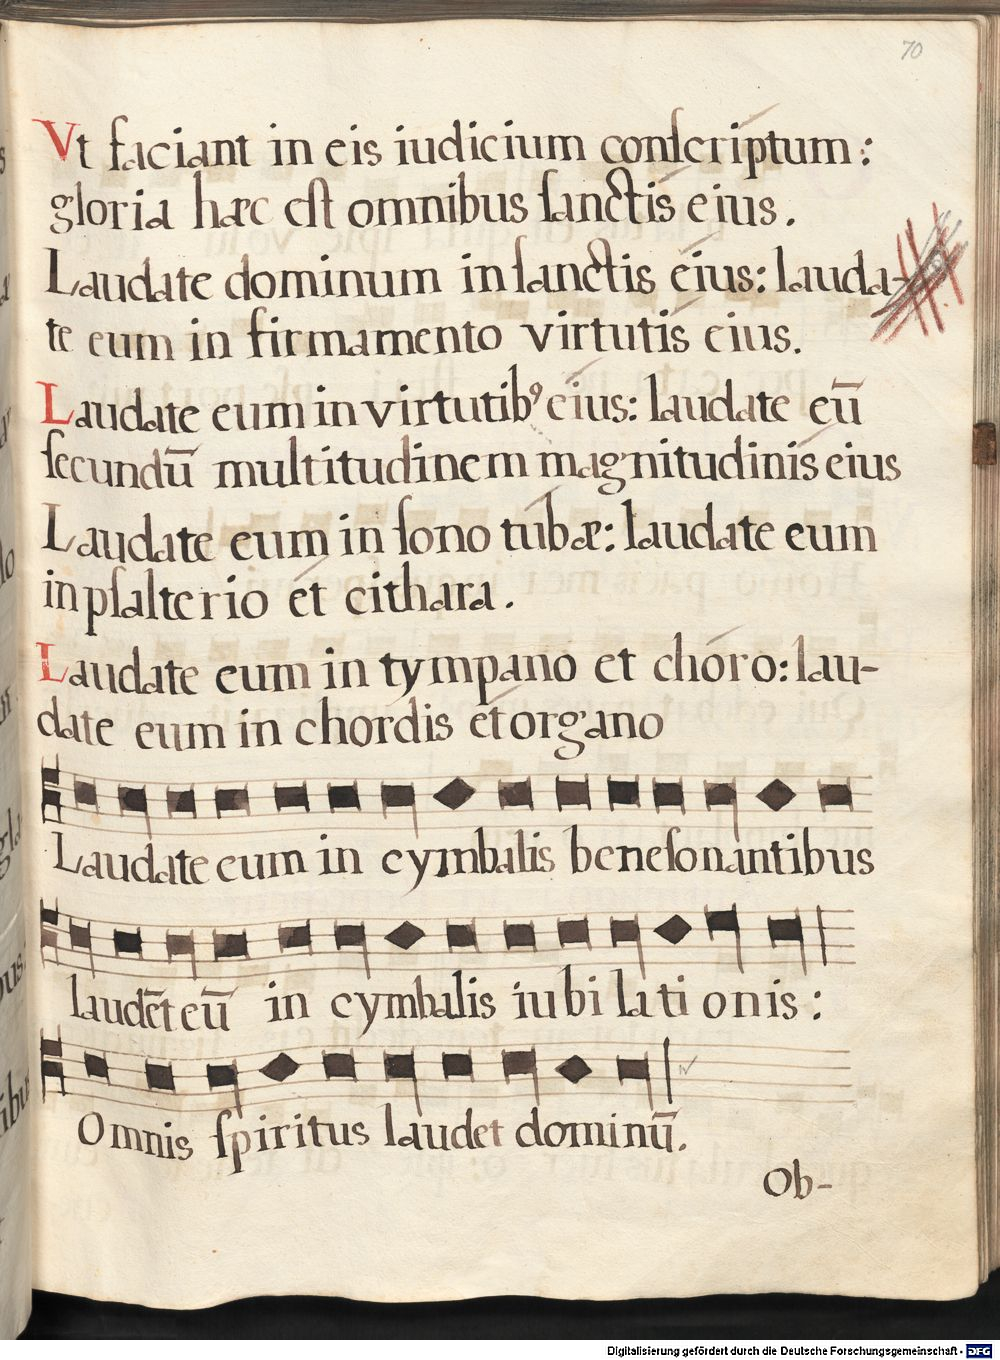 70
Vt faciant in eis iudicium conſcriptum:
gloria hæc eſt omnibus ſanctis eius.
Laudate dominum in ſanctis eius: lauda-
te eum in firmamento virtutis eius.
Laudate eum in virtutibꝰ eius: laudate eū
ſecundū multitudinem magnitudinis eius
Laudate eum in ſono tubæ: laudate eum
in pſalterio et cithara.
Laudate eum in tympano et choro: lau-
date eum in chordis et organo
Laudate eum in cymbalis beneſonantibus
laudēt eū in cymbalis iubilationis:
Omnis ſpiritus laudet dominū.
Ob-
Digitalisierung gefördert durch die Deutsche Forschungsgemeinschaft - DFG